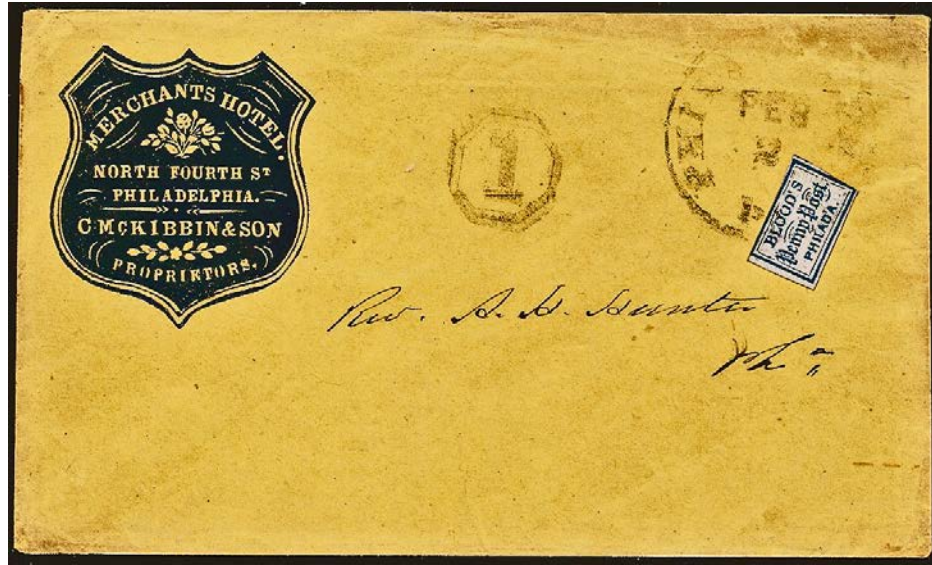 MERCHANTS HOTEL.
NORTH FOURTH ST
PHILADELPHIA.
C MCKIBBIN & SON
PROPRIKTORS.
1
PHI
FEB
2
BLOOD'S
Penny Post
PHILAD'A
Rev. A. H. Hunter
Pha